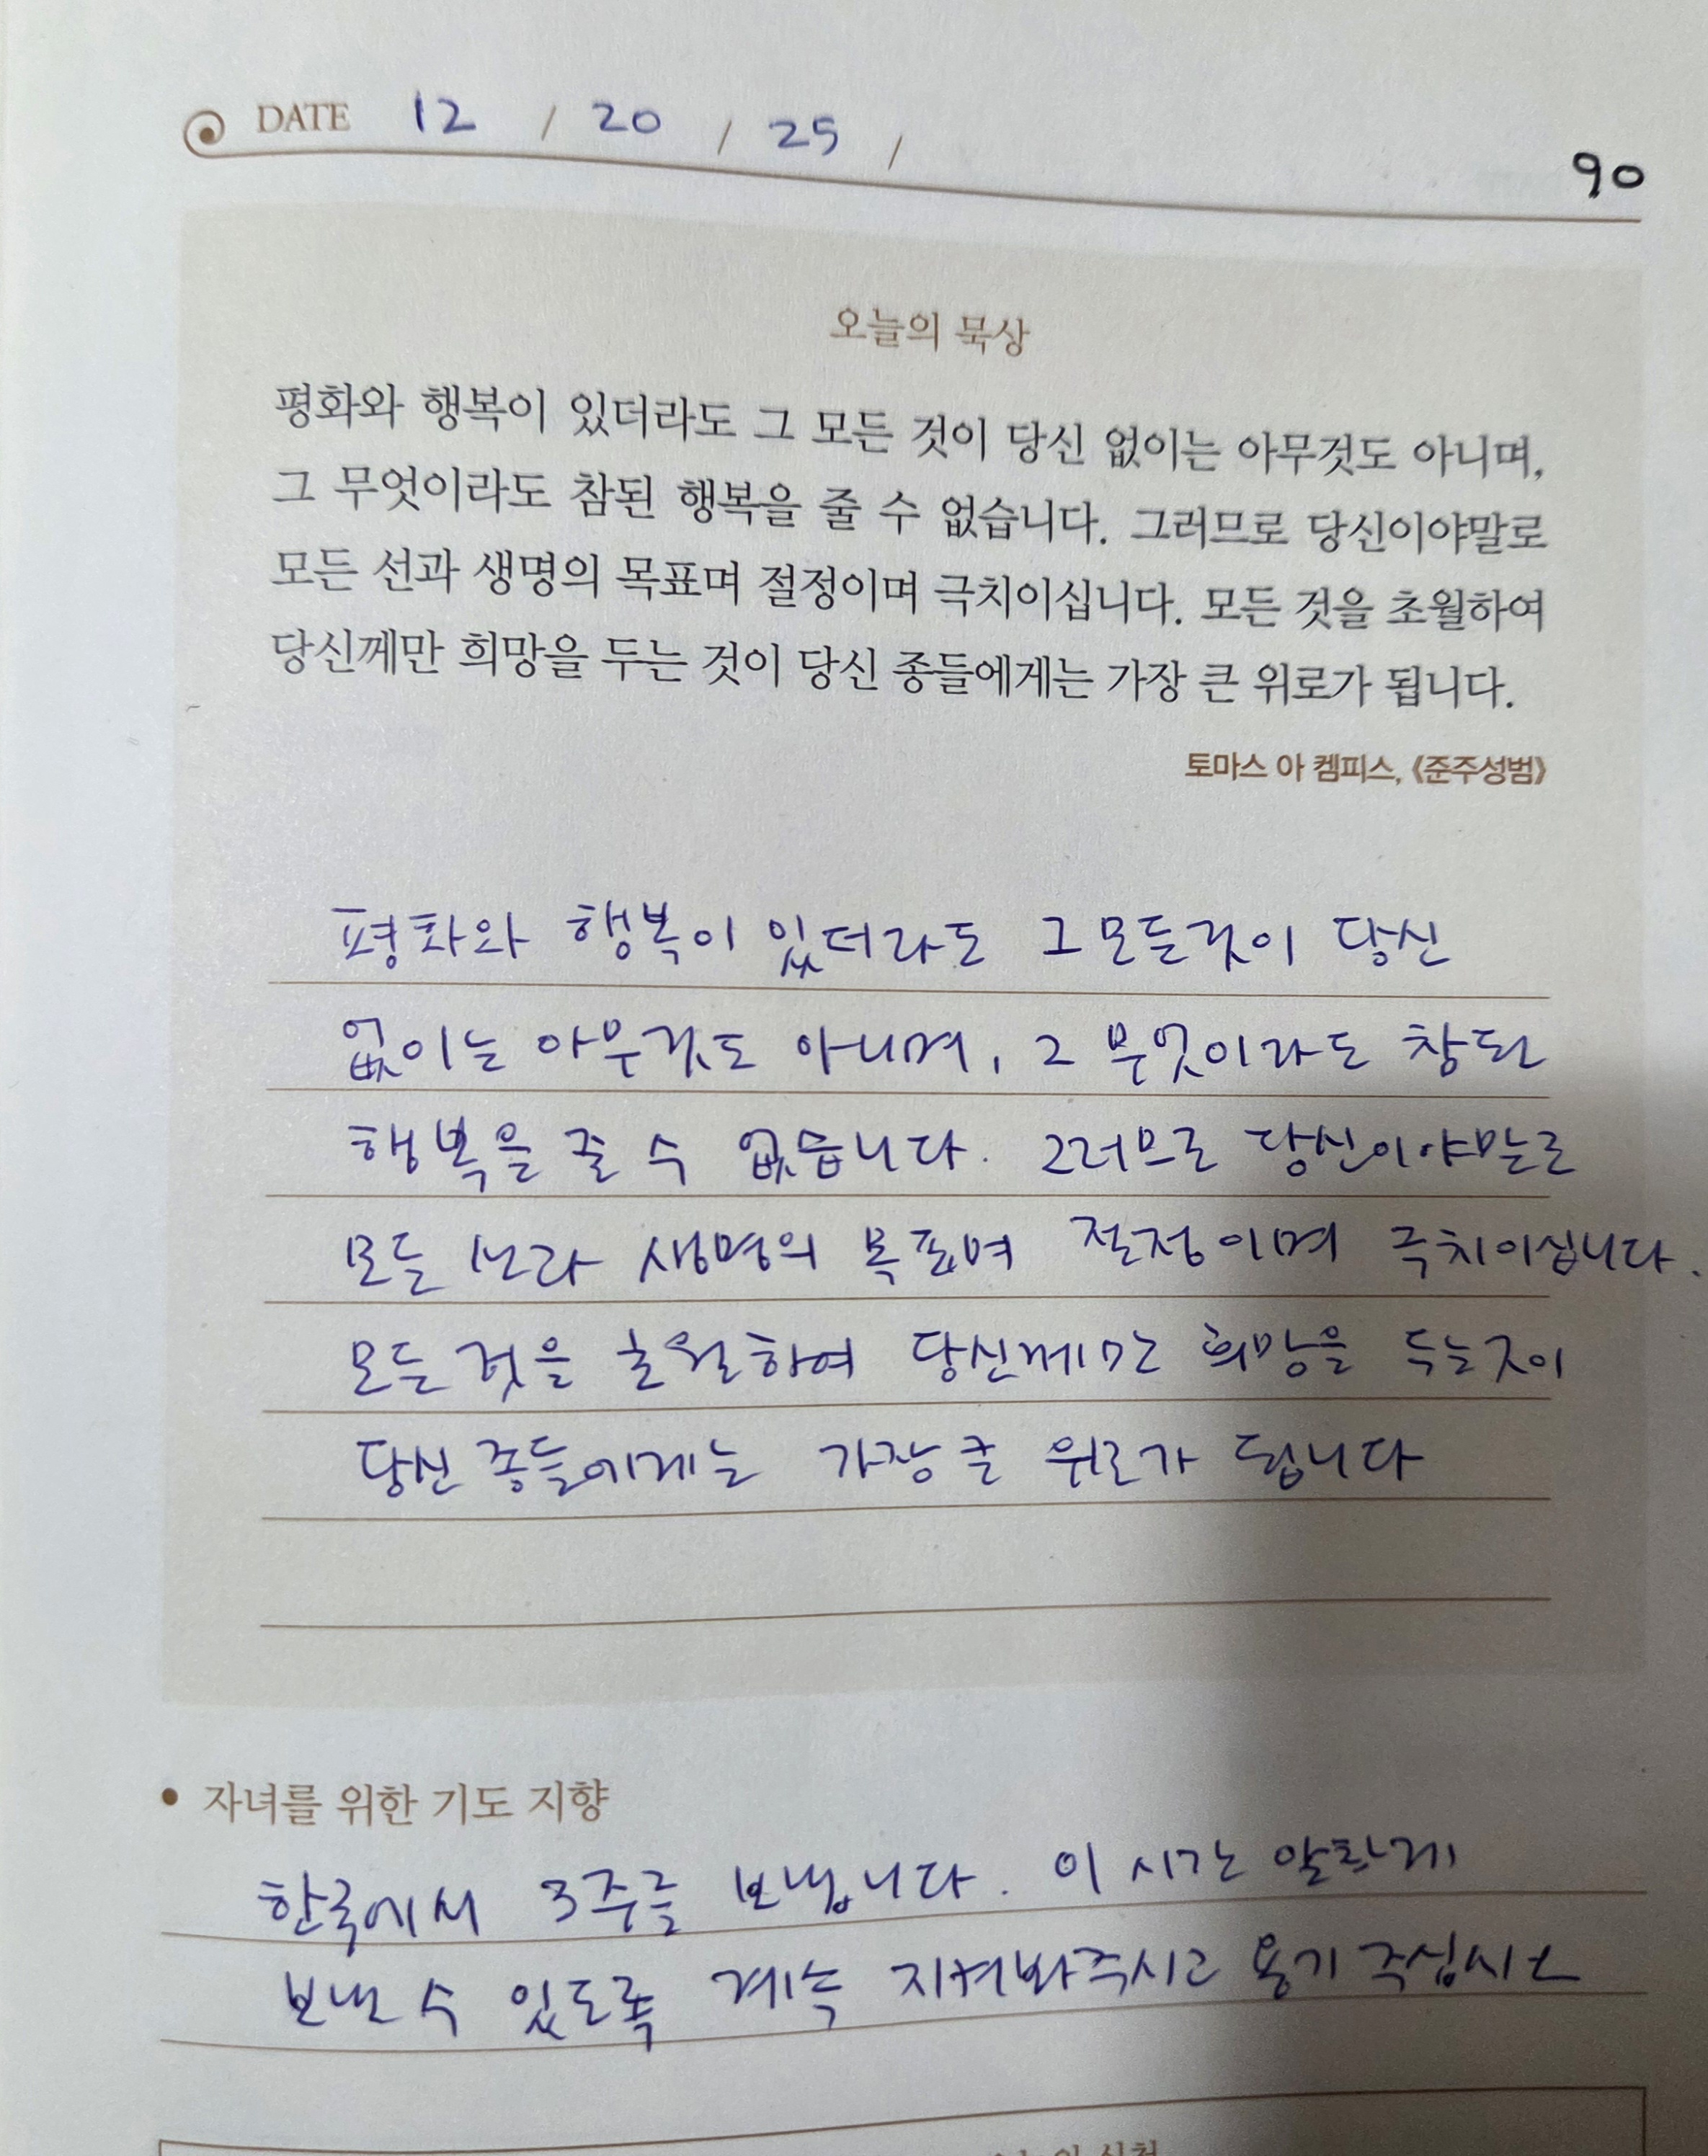 DATE 12 / 20 / 25 /
90
오늘의 묵상
평화와 행복이 있더라도 그 모든 것이 당신 없이는 아무것도 아니며,
그 무엇이라도 참된 행복을 줄 수 없습니다. 그러므로 당신이야말로
모든 선과 생명의 목표며 절정이며 극치이십니다. 모든 것을 초월하여
당신께만 희망을 두는 것이 당신 종들에게는 가장 큰 위로가 됩니다.
토마스 아 켐피스, 《준주성범》
평화와 행복이 있더라도 그 모든것이 당신
없이는 아무것도 아니며, 그 무엇이라도 참된
행복을 줄 수 없습니다. 그러므로 당신이야말로
모든 선과 생명의 목표며 절정이며 극치이십니다.
모든 것을 초월하여 당신께만 희망을 두는것이
당신 종들에게는 가장 큰 위로가 됩니다
• 자녀를 위한 기도 지향
한국에서 3주를 보냅니다. 이 시간 알차게
보낼 수 있도록 계속 지켜봐주시고 용기 주십시오